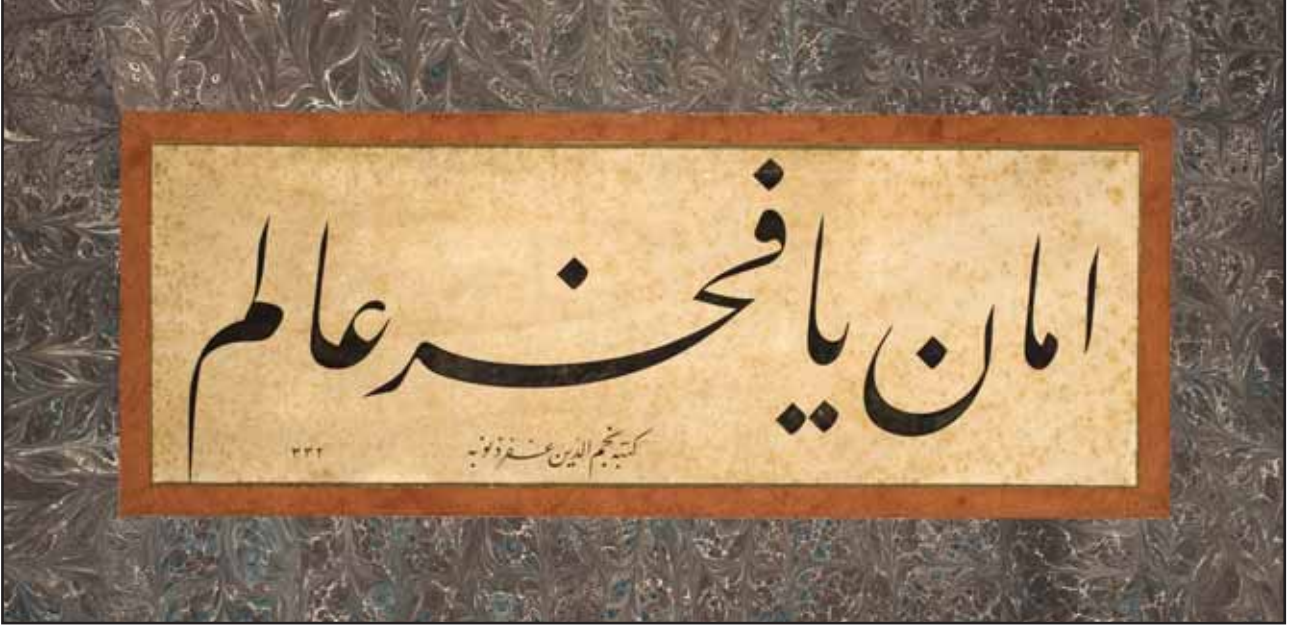 امان یا فخر عالم
کتبه نجم الدین غفر ذنوبه
۳۳۲